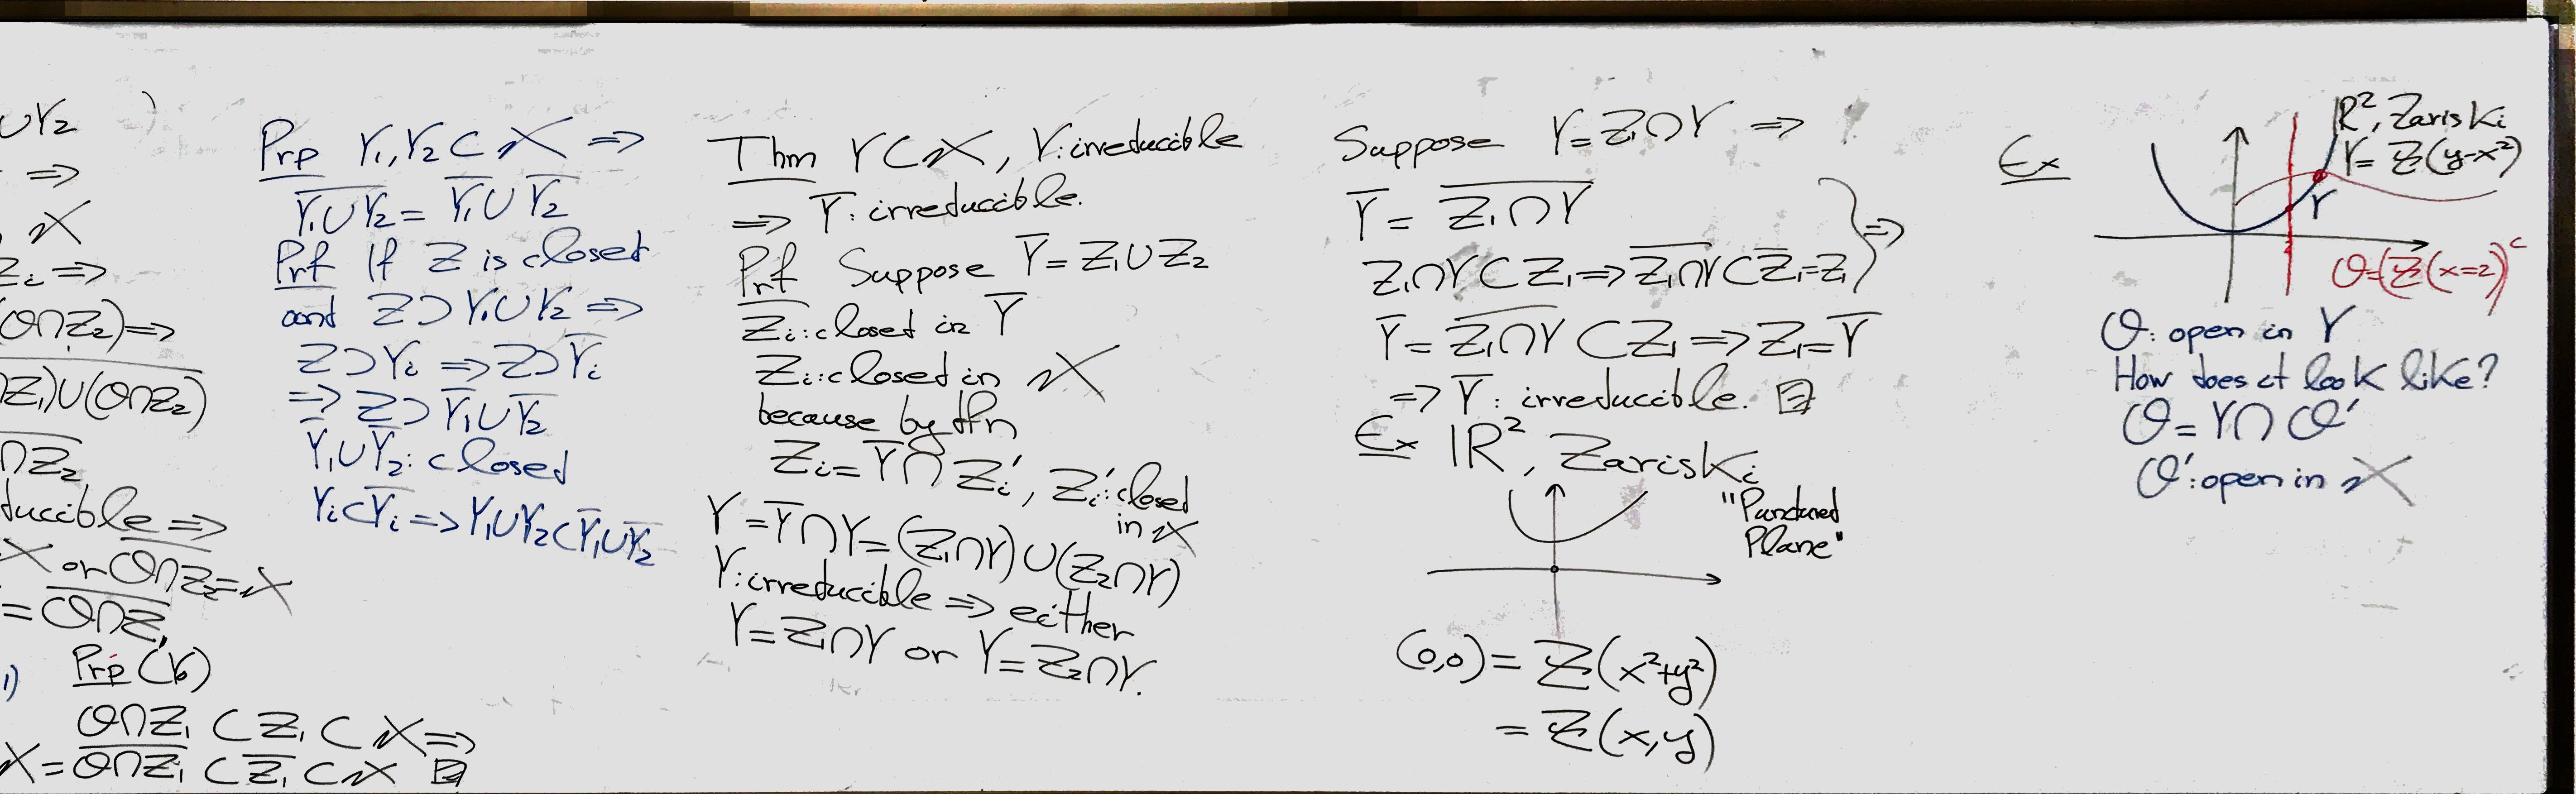 ∪Y₂
⇒
X
Zᵢ ⇒
(O∩Z₂) ⇒
∩Z₁)∪(O∩Z₂)
∩Z₂
ducible ⇒
X or O∩Z₂ = X
= O∩Z₁
Prp (b)
O∩Z₁ ⊂ Z₁ ⊂ X ⇒
X = \overline{O∩Z₁} ⊂ \overline{Z₁} ⊂ X
Prp Y₁, Y₂ ⊂ X ⇒
\overline{Y₁∪Y₂} = \overline{Y₁} ∪ \overline{Y₂}
Prf If Z is closed
and Z ⊃ Y₁∪Y₂ ⇒
Z ⊃ Yᵢ ⇒ Z ⊃ \overline{Yᵢ}
⇒ Z ⊃ \overline{Y₁} ∪ \overline{Y₂}
\overline{Y₁} ∪ \overline{Y₂} : closed
Yᵢ ⊂ \overline{Yᵢ} ⇒ Y₁∪Y₂ ⊂ \overline{Y₁} ∪ \overline{Y₂}
Thm Y ⊂ X, Y: irreducible
⇒ \overline{Y}: irreducible.
Prf Suppose \overline{Y} = Z₁∪Z₂
Zᵢ: closed in \overline{Y}
Zᵢ: closed in X
because by dfn
Zᵢ = \overline{Y} ∩ Zᵢ', Zᵢ': closed
in X
Y = \overline{Y}∩Y = (Z₁∩Y) ∪ (Z₂∩Y)
Y: irreducible ⇒ either
Y = Z₁∩Y or Y = Z₂∩Y.
Suppose Y = Z₁∩Y ⇒
\overline{Y} = \overline{Z₁∩Y}
Z₁∩Y ⊂ Z₁ ⇒ \overline{Z₁∩Y} ⊂ \overline{Z₁} = Z₁ } ⇒
\overline{Y} = \overline{Z₁∩Y} ⊂ Z₁ ⇒ Z₁ = \overline{Y}
⇒ \overline{Y}: irreducible.
Ex ℝ², Zariski
"Punctured
Plane"
(0,0) = Z(x²+y²)
= Z(x,y)
Ex
ℝ², Zariski
Y = Z(y-x²)
Y
2
O = (Z(x=2))ᶜ
O: open in Y
How does it look like?
O = Y∩O'
O': open in X